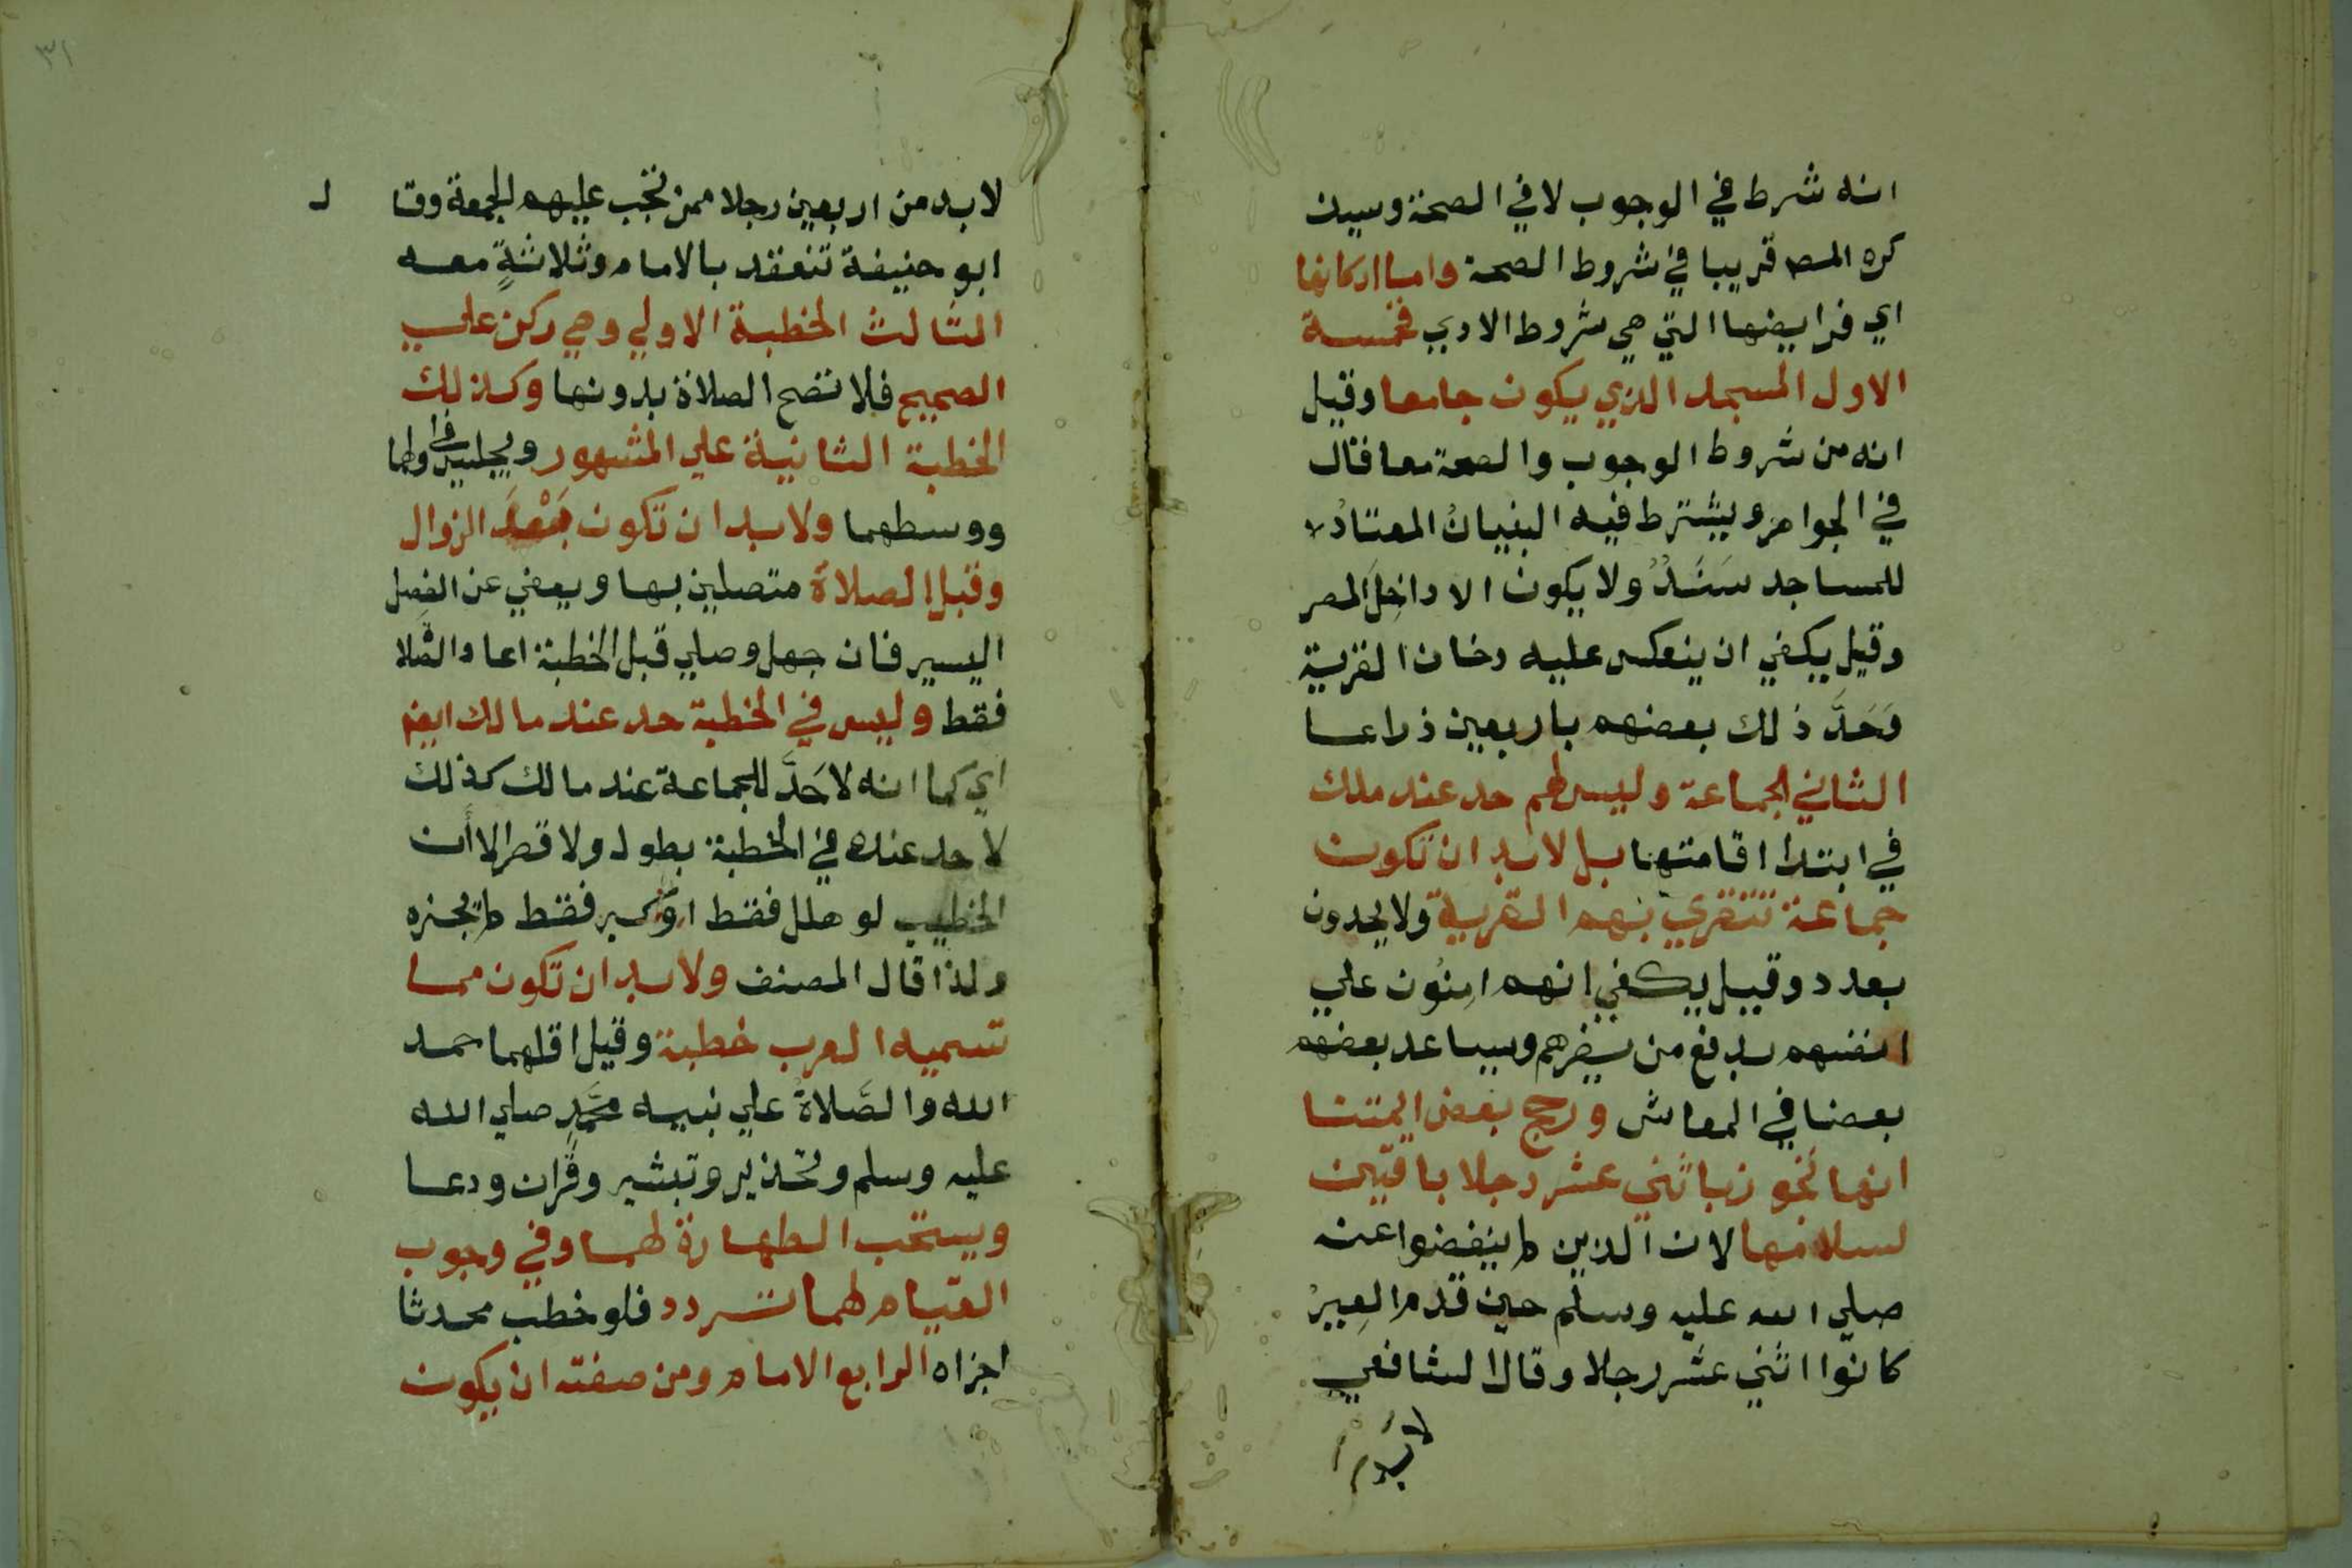 انه شرط في الوجوب لا في الصحة وسيذ
كره المص قريبا في شروط الصحة واما اركانها
اي فرايضها التي هي شروط الادي فخمسة
الاول المسجد الذي يكون جامعا وقيل
انه من شروط الوجوب والصحة معا فقال
في الجواهر ويشترط فيه البنيانُ المعتادُ
للمساجد سَنَدُ ولا يكون الا داخِلَ المصر
وقيل يكفي ان ينعكس عليه دخان القرية
وَحَدَّ ذلك بعضهم باربعين ذراعا
الثاني الجماعة وليس لهم حد عند ملك
في ابتدا اقامتها بل لا بد ان تكون
جماعة تتقري بهم القرية ولا يحدون
بعدد وقيل يكفي انهم امِنُون علي
انفسهم بدفع من يضرهم ويساعد بعضهم
بعضا في المعاش ورجح بعض ايمتنا
انها تجوز باثني عشر رجلا باقين
لسلامها لان الذين لم ينفضوا عنه
صلي الله عليه وسلم حين قدم العِيرُ
كانوا اثني عشر رجلا وقال الشافعي
لا بد من ا
٣١
لا بد من اربعين رجلا ممن تجب عليهم الجمعة وقا ل
ابو حنيفة تنعقد بالامام وثلاثةٍ معه
الثالث الخطبة الاولي وهي ركن علي
الصحيح فلا تصح الصلاة بدونها وكذلك
الخطبة الثانية علي المشهور ويجلس في اولها
ووسطهما ولا بد ان تكون بَعْدَ الزوال
وقبل الصلاة متصلين بها ويعفي عن الفصل
اليسير فان جهل وصلي قبل الخطبة اعاد الصلا
فقط وليس في الخطبة حد عند مالك ايضا
اي كما انه لا حَدَّ للجماعة عند مالك كذلك
لا حد عنده في الخطبة بطول ولا قصر الا أن
الخطيب لو هلل فقط او كبر فقط لم تجزه
ولذا قال المصنف ولا بد ان تكون مما
تسميه العرب خطبة وقيل اقلهما حمد
الله والصَّلاةُ علي نبيه محمَّدٍ صلي الله
عليه وسلم وتحذير وتبشير وقران ودعا
ويستحب الطهارة لهما وفي وجوب
القيام لهما تردد فلو خطب محدثا
اجزاه الرابع الامام ومن صفته ان يكون